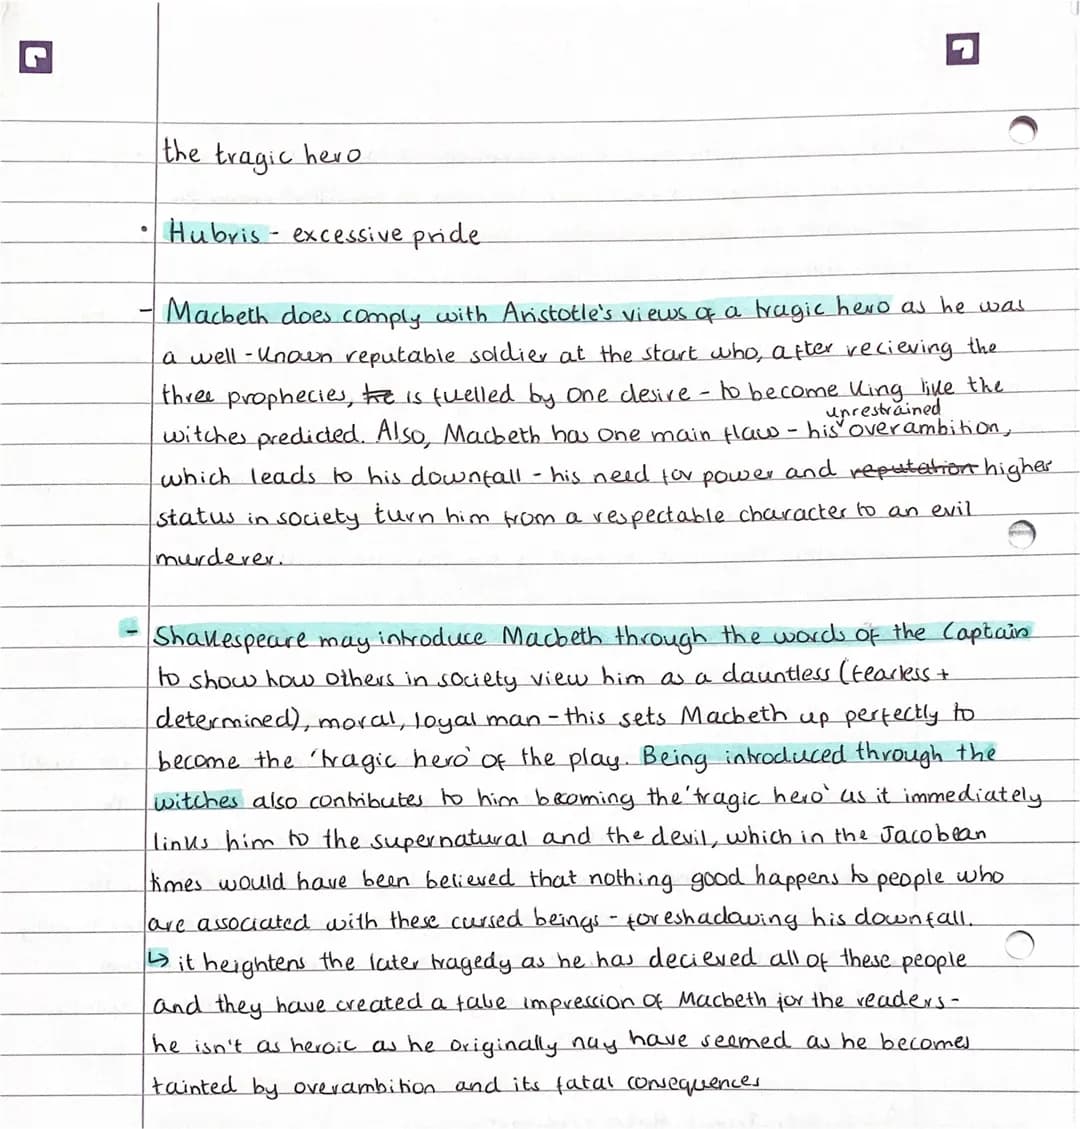 the tragic hero
• Hubris - excessive pride
- Macbeth does comply with Aristotle's views of a tragic hero as he was
a well-known reputable soldier at the start who, after recieving the
three prophecies, he is fuelled by one desire - to become King like the
unrestrained
witches predicted. Also, Macbeth has one main flaw - his overambition,
which leads to his downfall - his need for power and reputation higher
status in society turn him from a respectable character to an evil
murderer.
- Shakespeare may introduce Macbeth through the words of the Captain
to show how others in society view him as a dauntless (fearless +
determined), moral, loyal man - this sets Macbeth up perfectly to
become the 'tragic hero' of the play. Being introduced through the
witches also contributes to him becoming the 'tragic hero' as it immediately
links him to the supernatural and the devil, which in the Jacobean
times would have been believed that nothing good happens to people who
are associated with these cursed beings - foreshadowing his downfall.
↳ it heightens the later tragedy as he has decieved all of these people
and they have created a false impression of Macbeth for the readers -
he isn't as heroic as he originally may have seemed as he becomes
tainted by overambition and its fatal consequences